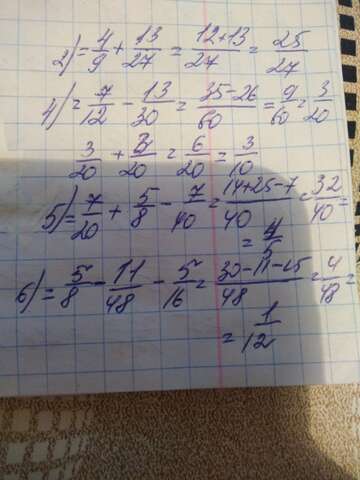 2) = 4/9 + 13/27 = 12+13/27 = 25/27
4) = 7/12 - 13/30 = 35-26/60 = 9/60 = 3/20
3/20 + 3/20 = 6/20 = 3/10
5) = 7/20 + 5/8 - 7/40 = 14+25-7/40 = 32/40 =
= 4/5
6) = 5/8 - 11/48 - 5/16 = 30-11-15/48 = 4/48 =
= 1/12